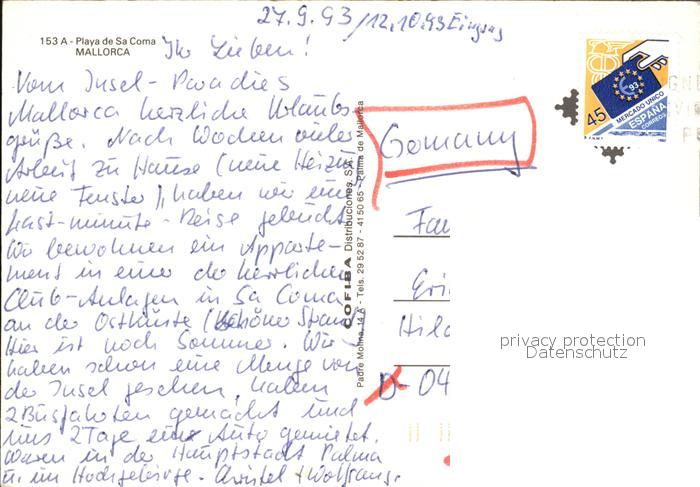 27.9.93 / 12.10.93 Eingang
153 A - Playa de Sa Coma
MALLORCA
Ihr Lieben!
Vom Insel-Paradies
Mallorca herzliche Urlaubs-
grüße. Nach Wochen vieler
Arbeit zu Hause (neue Heizun
neue Fenster), haben wir eine
Last-minute-Reise gebucht
Wir bewohnen ein Apparte-
ment in einer der herrlichen
Club-Anlagen in Sa Coma
an der Ostküste (schöner Strand)
Hier ist noch Sommer. Wir
haben schon eine Menge von
der Insel gesehen, haben
2 Busfahrten gemacht und
uns 2 Tage ein Auto gemietet.
Waren in der Hauptstadt Palma
u. im Hochgebirge. Christel + Wolfgang.
COFIBA Distribuciones, S.A.
Padre Molina, 14 A - Tels. 29 52 87 - 41 50 65 - Palma de Mallorca
45
93
MERCADO UNICO
ESPAÑA
CORREOS
Germany
Fam
Eri
Hild
D-04
privacy protection
Datenschutz